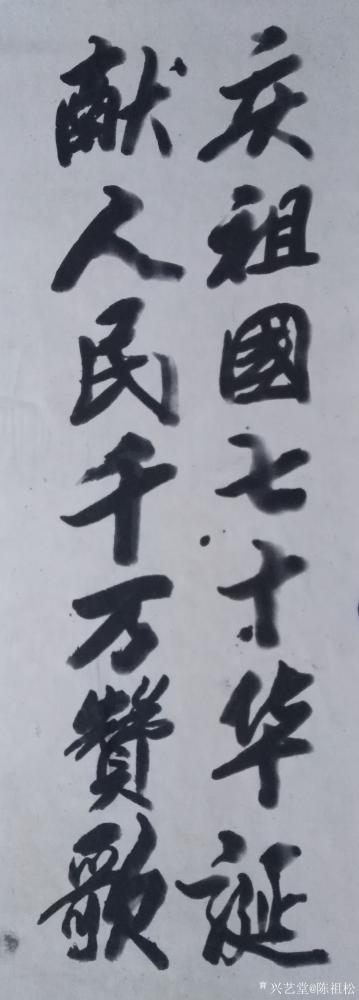 庆祖國七十华誕
献人民千万贊歌
兴艺堂@陈祖松